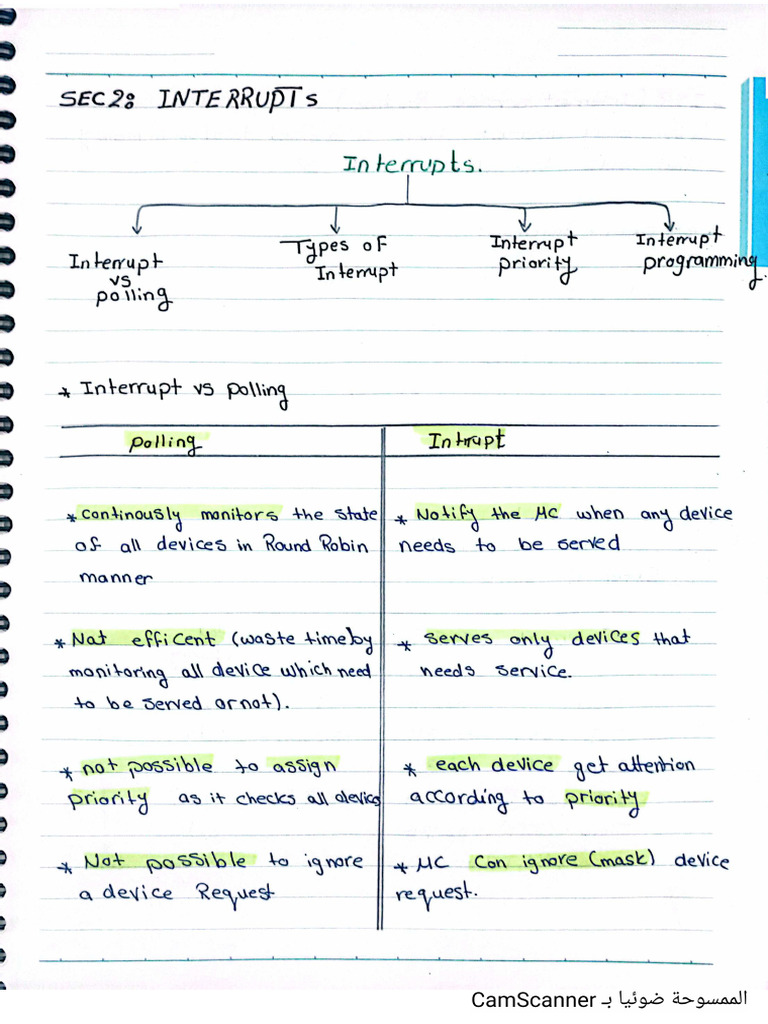 SEC2: INTERRUPTs
Interrupts.
Interrupt
vs
polling
Types of
Interrupt
Interrupt
priority
Interrupt
programming.
* Interrupt vs polling
polling
Intrrupt
* continously monitors the state
of all devices in Round Robin
manner
* Not efficent (waste time by
monitoring all device which need
to be served or not).
* not possible to assign
priority as it checks all device
* Not possible to ignore
a device Request
* Notify the MC when any device
needs to be served
* serves only devices that
needs service.
* each device get attention
according to priority
* MC Can ignore (mask) device
request.
الممسوحة ضوئيا بـ CamScanner